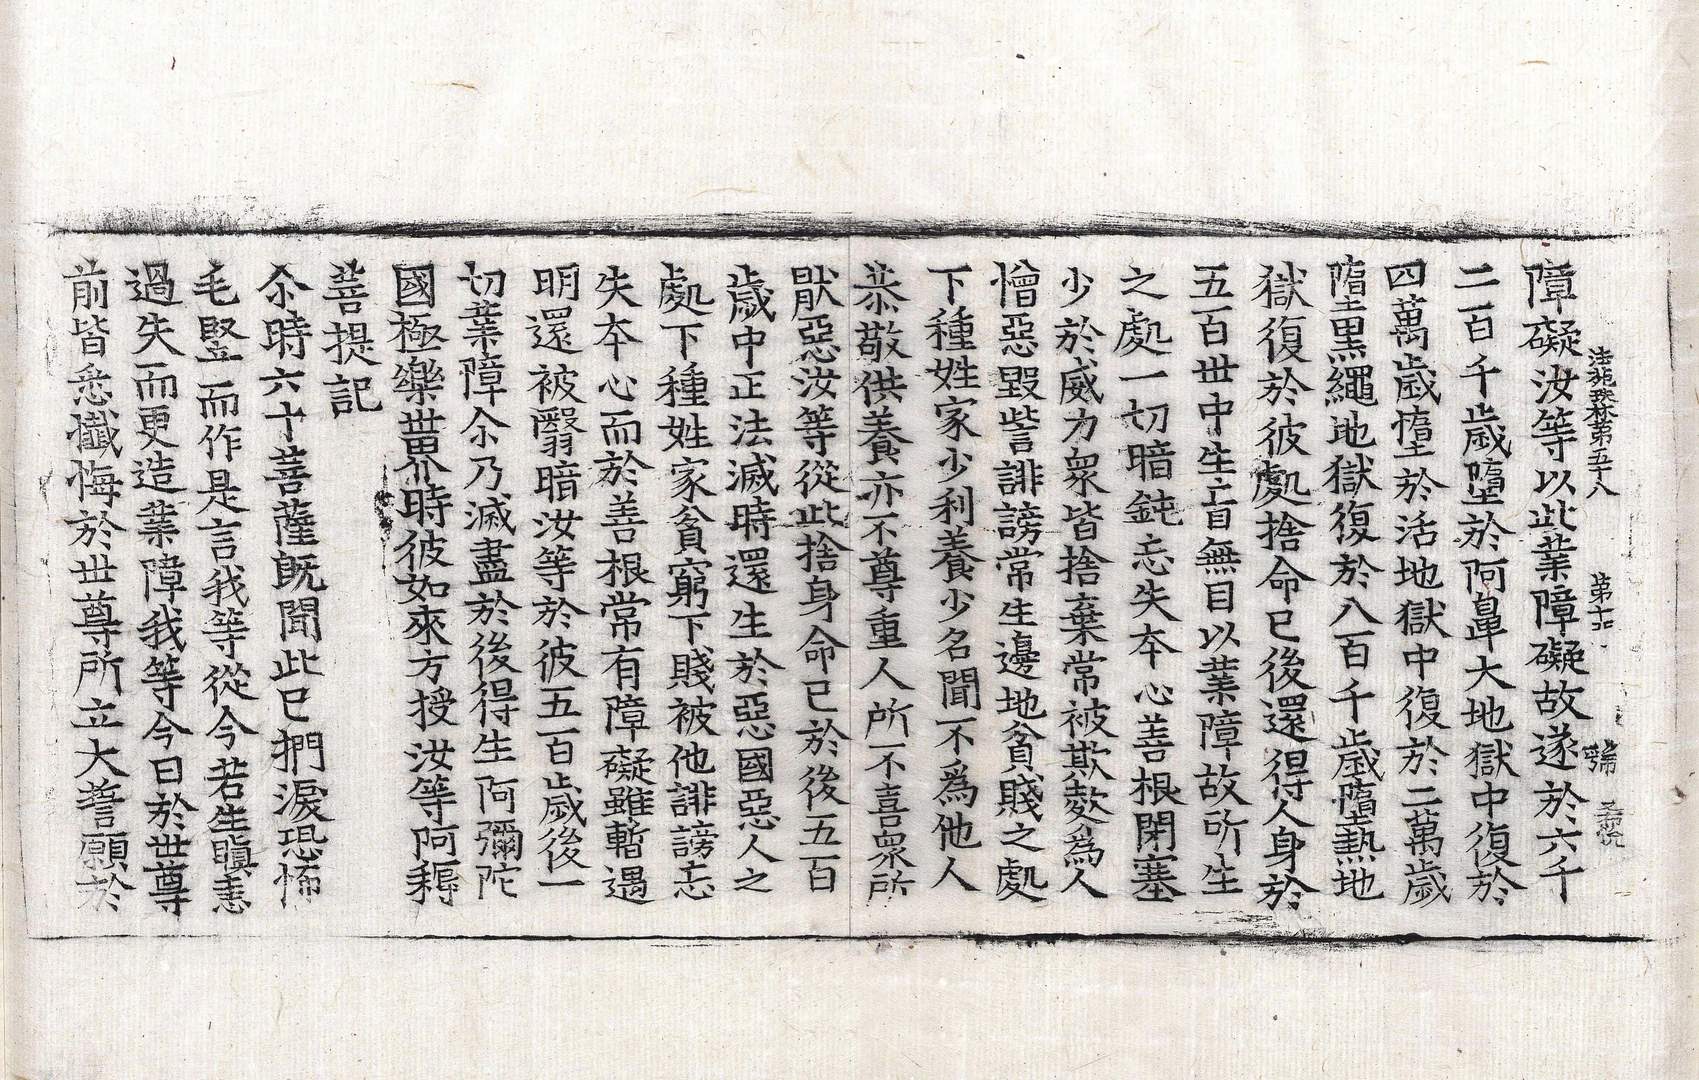 法苑珠林第五十八 第十 號
障礙汝等以此業障礙故遂於六千
二百千歲墮於阿鼻大地獄中復於
四萬歲墮於活地獄中復於二萬歲
墮黑繩地獄復於八百千歲墮熱地
獄復於彼處捨命已後還得人身於
五百世中生盲無目以業障故所生
之處一切暗鈍忘失本心善根閉塞
少於威力衆皆捨棄常被欺㪍爲人
憎惡毀訾誹謗常生邊地貧賤之處
下種姓家少利養少名聞不爲他人
恭敬供養亦不尊重人所不喜衆所
猒惡汝等從此捨身命已於後五百
歲中正法滅時還生於惡國惡人之
處下種姓家貧窮下賤被他誹謗忘
失本心而於善根常有障礙雖暫遇
明還被翳暗汝等於彼五百歲後一
切業障尒乃滅盡於後得生阿彌陀
國極樂世界時彼如來方授汝等阿耨
菩提記
尒時六十菩薩旣聞此已捫淚恐怖
毛竪而作是言我等從今若生瞋恚
過失而更造業障我等今日於世尊
前皆悉懺悔於世尊所立大誓願於